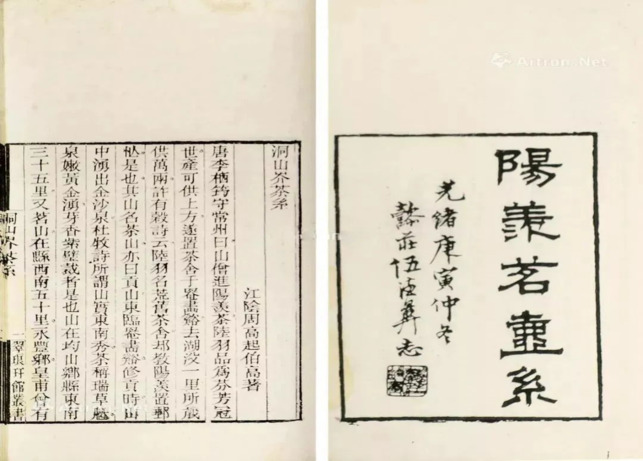 陽羨茗壺系
光緒庚寅仲冬
懿莊伍德彝志
洞山岕茶系
江陰周高起伯高著
唐李栖筠守常州曰山僧進陽羨茶陸羽品爲芬芳冠
世產可供上方遂置茶舍于罨畫谿去湖㳇一里所歲
供萬兩許有穀詩云陸羽名荒舊茶舍却教陽羨置郵
忙是也其山名茶山亦曰貢山東臨罨畫谿修貢時山
中湧出金沙泉杜牧詩所謂山實東南秀茶稱瑞草魁
泉嫩黃金湧芽香紫璧裁者是也山在均山鄉縣東南
三十五里又茗山在縣西南五十里永豐鄉皇甫曾有
洞山岕茶系
一
翠琅玕館叢書
Artron.Net